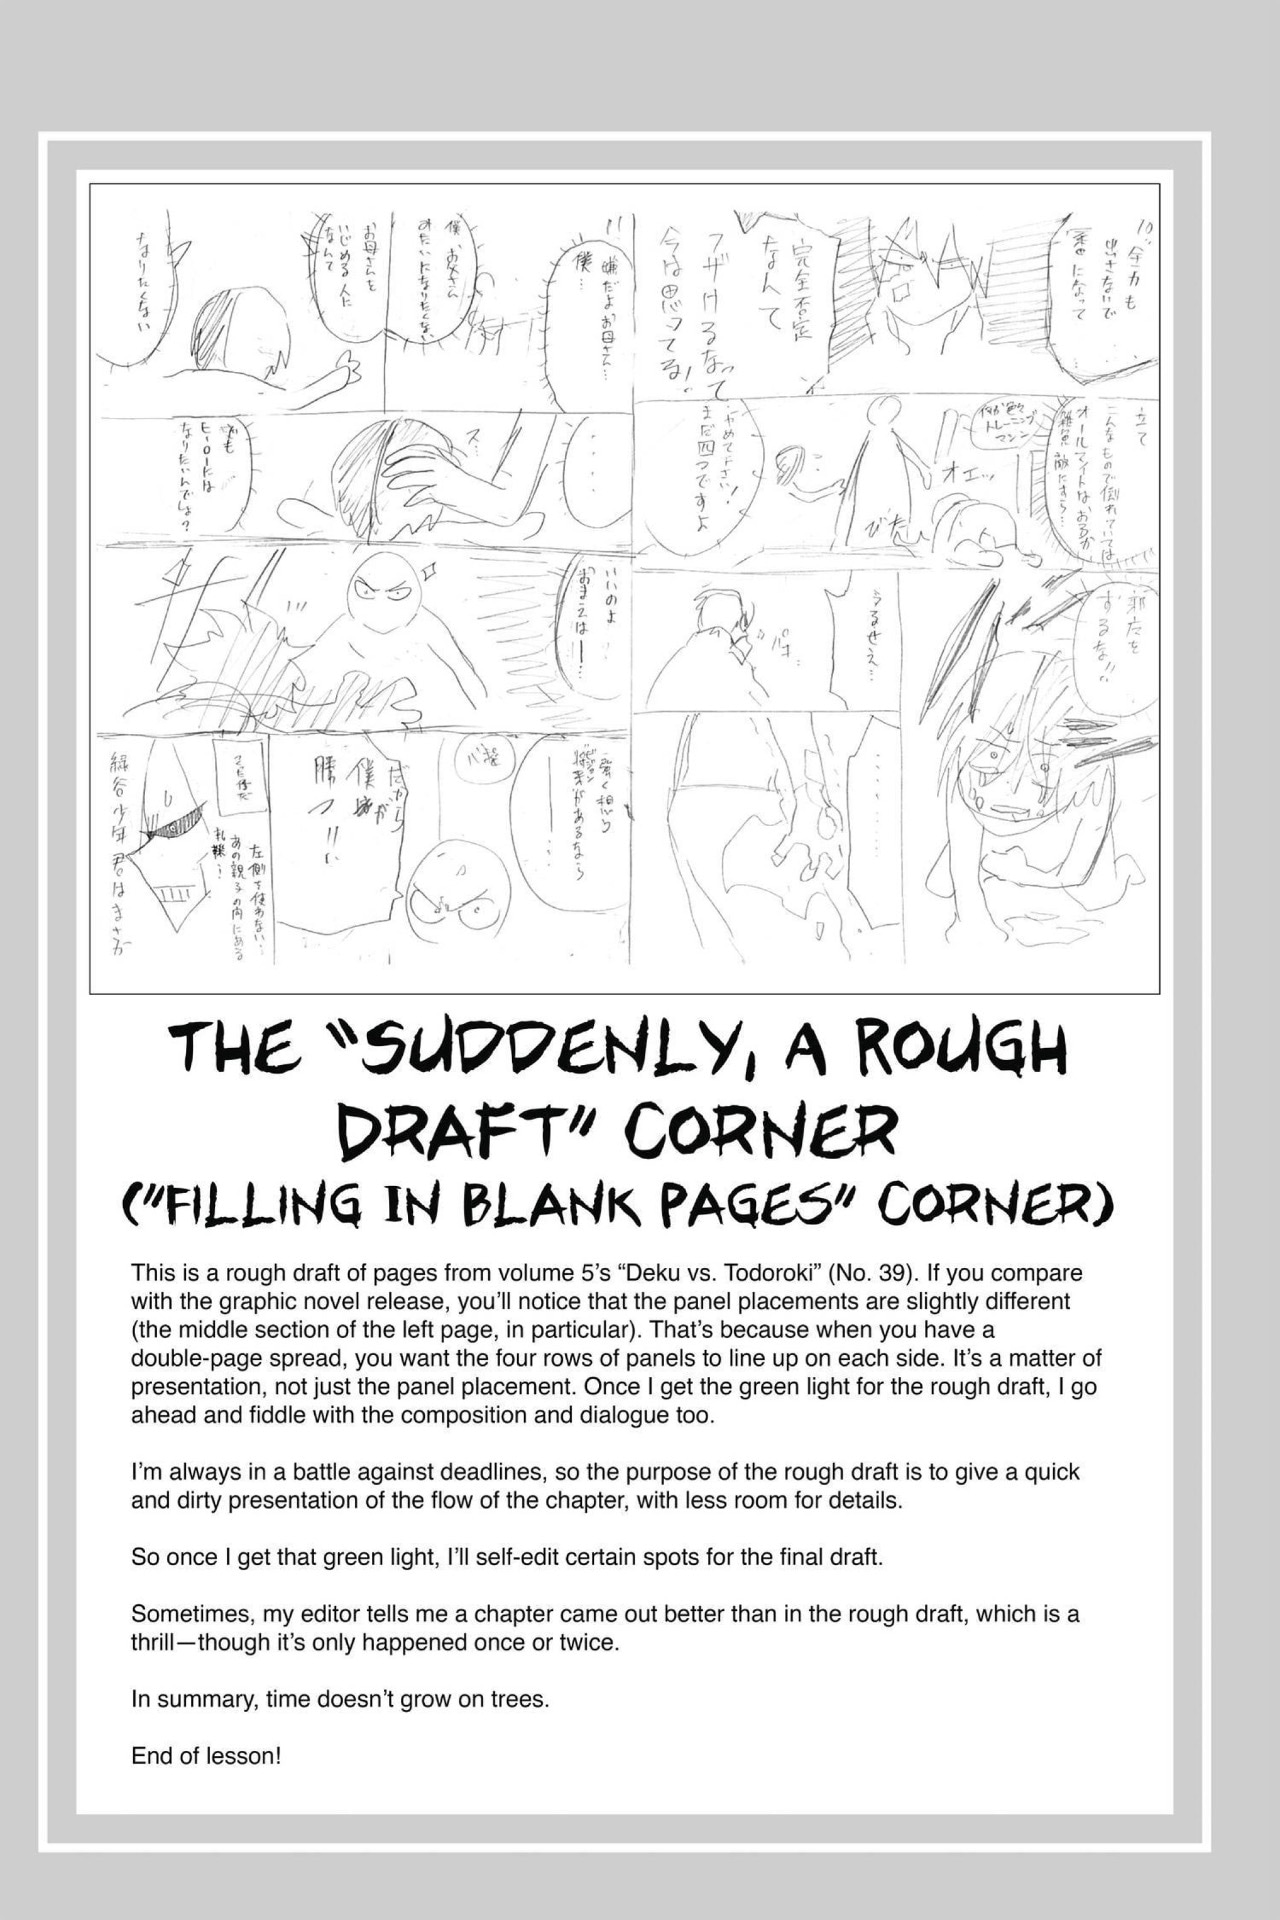 10
全力も
出さないで
一番になって
完全否定
なんて
フザけるなって
今は思ってる!
立て
こんなもので倒れていては
オールマイトはおろか
雑魚敵にすら…
トレーニング
マシン
オエッ
びたん
やめて下さい!
まだ四つですよ
邪魔を
するな!!
うるせえ…
11
嫌だよお母さん…
僕…
僕、お父さん
みたいになりたくない
お母さんを
いじめる人に
なんて
なりたくない
....
ス…
でも
ヒーローには
なりたいんでしょ?
いいのよ
おまえは—…
強く想う
があるなら
だから
僕が
勝つ!!
左側を使わない…
あの親子の内にある
緑谷少年君はまさか
THE “SUDDENLY, A ROUGH
DRAFT” CORNER
(“FILLING IN BLANK PAGES” CORNER)
This is a rough draft of pages from volume 5’s “Deku vs. Todoroki” (No. 39). If you compare
with the graphic novel release, you’ll notice that the panel placements are slightly different
(the middle section of the left page, in particular). That’s because when you have a
double-page spread, you want the four rows of panels to line up on each side. It’s a matter of
presentation, not just the panel placement. Once I get the green light for the rough draft, I go
ahead and fiddle with the composition and dialogue too.
I’m always in a battle against deadlines, so the purpose of the rough draft is to give a quick
and dirty presentation of the flow of the chapter, with less room for details.
So once I get that green light, I’ll self-edit certain spots for the final draft.
Sometimes, my editor tells me a chapter came out better than in the rough draft, which is a
thrill—though it’s only happened once or twice.
In summary, time doesn’t grow on trees.
End of lesson!